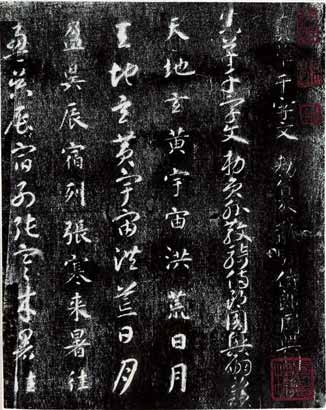 草千字文 勑員外散騎侍郎周興
真草千字文勑員外散騎侍郎周興嗣次
天地玄黃宇宙洪荒日月
天地玄黃宇宙洪荒日月
盈昃辰宿列張寒來暑往
盈昃辰宿列張寒來暑往